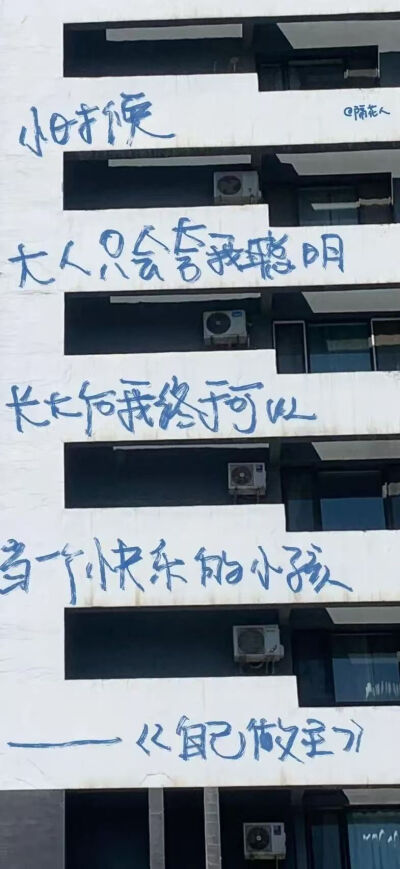 小时候
@隔花人
大人只会夸我聪明
长大后我终于可以
当一个快乐的小孩
——《自己做主》